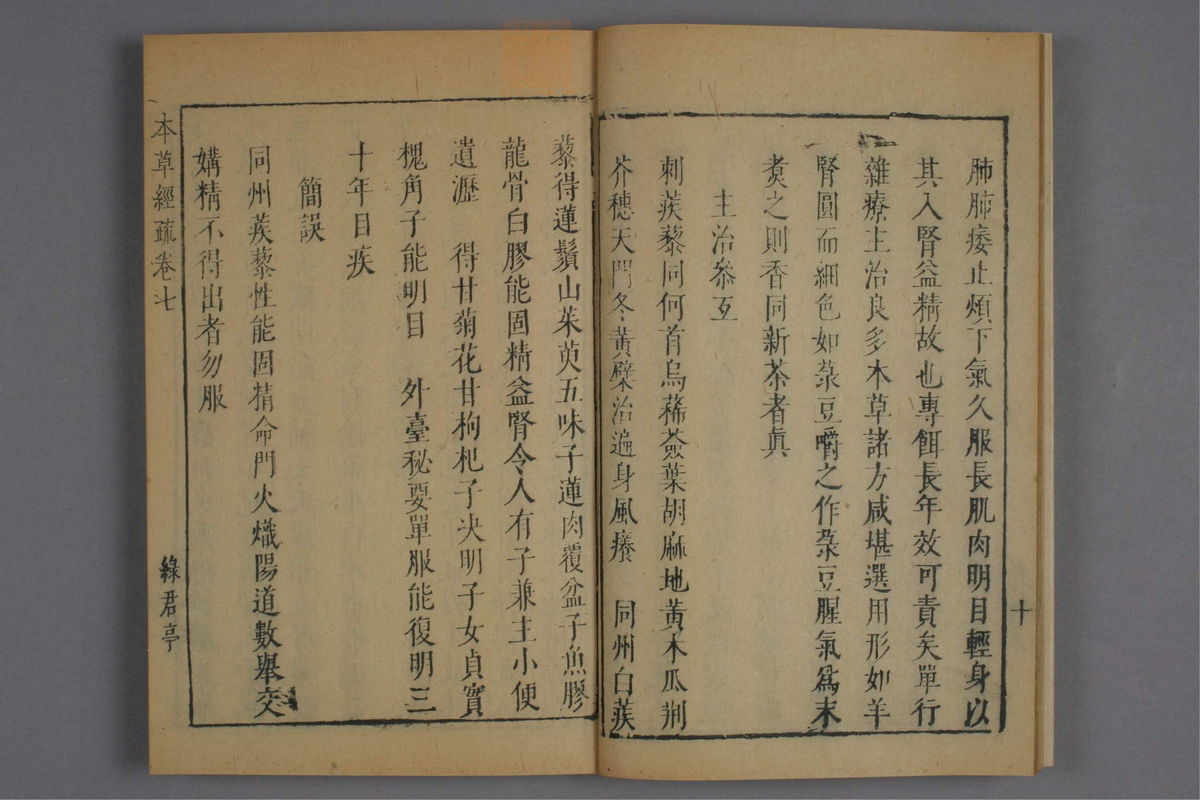 肺肺痿止煩下氣久服長肌肉明目輕身以
其入腎益精故也專餌長年效可責矣單行
雜療主治良多木草諸方咸堪選用形如羊
腎圓而細色如菉豆嚼之作菉豆腥氣爲末
煑之則香同新茶者眞
主治叅互
刺蒺藜同何首烏豨薟葉胡麻地黃木瓜荆
芥穗天門冬黃檗治遍身風癢 同州白蒺
十
藜得蓮鬚山茱萸五味子蓮肉覆盆子魚膠
龍骨白膠能固精益腎令人有子兼主小便
遺瀝 得甘菊花甘枸杞子决明子女貞實
槐角子能明目 外臺秘要單服能復明三
十年目疾
簡誤
同州蒺藜性能固精命門火熾陽道數舉交
媾精不得出者勿服
本草經疏卷七
綠君亭